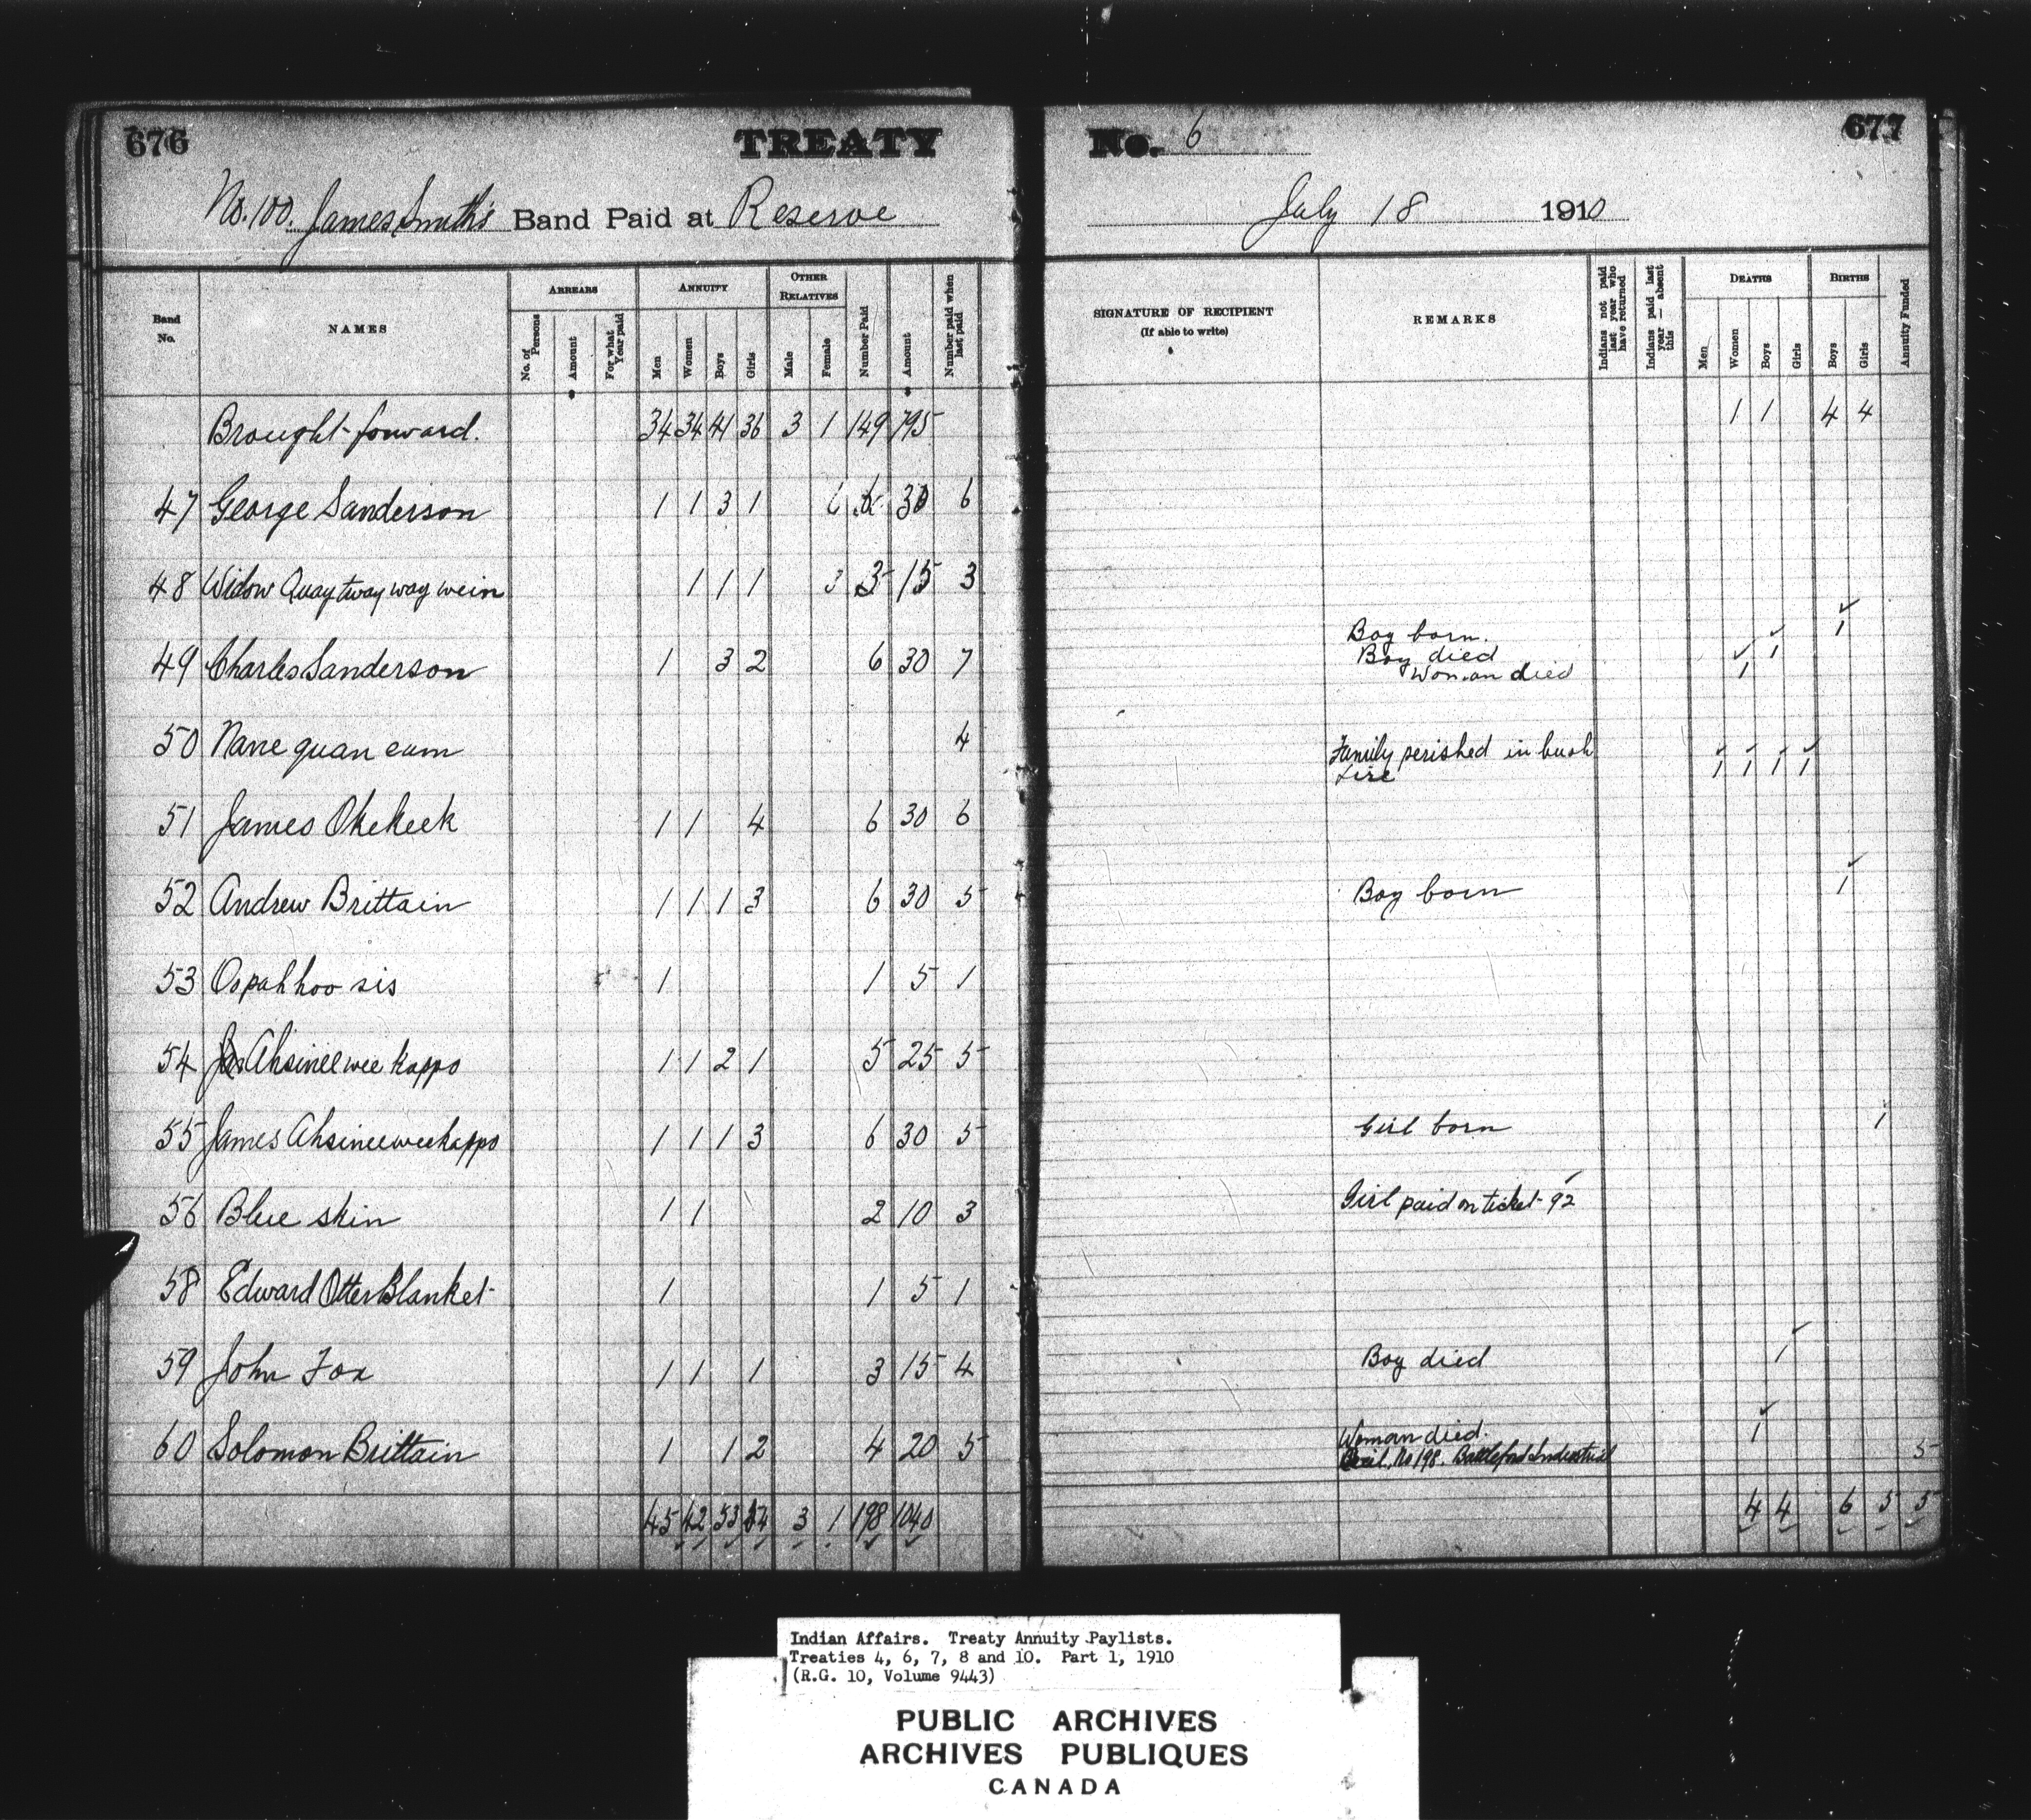 676
TREATY
No. 6
677
No. 100. James Smith's Band Paid at Reserve
July 18 1910
Band No.
NAMES
ARREARS
No. of Persons
Amount
For what Year paid
ANNUITY
Men
Women
Boys
Girls
OTHER RELATIVES
Male
Female
Number Paid
Amount
Number paid when last paid
SIGNATURE OF RECIPIENT
(If able to write)
REMARKS
Indians not paid last year who have returned
Indians paid last year — absent this
DEATHS
Men
Women
Boys
Girls
BIRTHS
Boys
Girls
Annuity Funded
Brought forward. 34 34 41 36 3 1 149 795 1 1 4 4
47 George Sanderson 1 1 3 1 6 6 30 6
48 Widow Quay tway way wein 1 1 1 3 3 15 3
49 Charles Sanderson 1 3 2 6 30 7
Boy born. ✓ 1
Boy died ✓ 1
Woman died ✓ 1
50 Nane quan eum 4
Family perished in bush ✓ ✓ ✓ ✓
fire 1 1 1 1
51 James Okekeek 1 1 4 6 30 6
52 Andrew Brittain 1 1 1 3 6 30 5 Boy born ✓ 1
53 Oopahhoo sis 1 1 5 1
54 Ahsinee wee kappo 1 1 2 1 5 25 5
55 James Ahsineeweekappo 1 1 1 3 6 30 5 Girl born 1
56 Blue skin 1 1 2 10 3 Girl paid on ticket 92 ✓
58 Edward Otter Blanket 1 1 5 1
59 John Fox 1 1 1 3 15 4 Boy died ✓ 1
60 Solomon Brittain 1 1 2 4 20 5
Woman died. ✓ 1
No 198. Battleford Industrial 5
45 42 53 54 3 1 198 1040 4 4 6 5 5
Indian Affairs. Treaty Annuity Paylists.
Treaties 4, 6, 7, 8 and 10. Part 1, 1910
(R.G. 10, Volume 9443)
PUBLIC ARCHIVES
ARCHIVES PUBLIQUES
CANADA